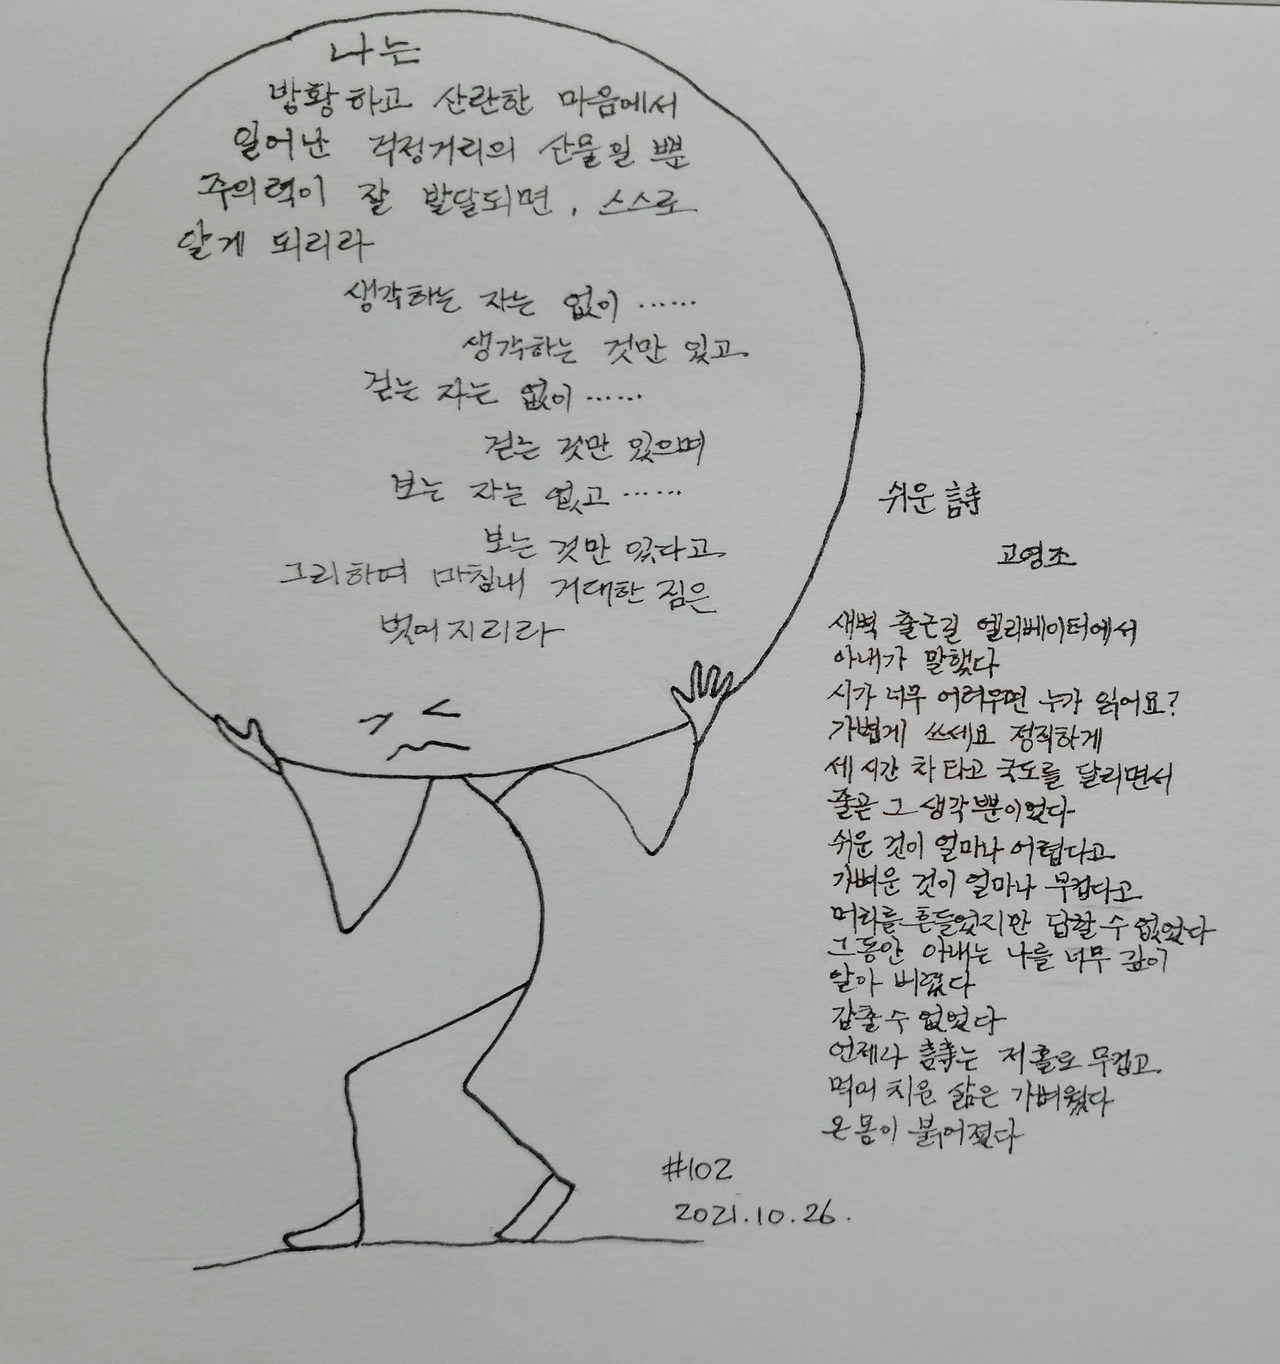 나는
방황하고 산란한 마음에서
일어난 걱정거리의 산물일 뿐
주의력이 잘 발달되면, 스스로
알게 되리라
생각하는 자는 없이 ······
생각하는 것만 있고
걷는 자는 없이 ······
걷는 것만 있으며
보는 자는 없고 ······
보는 것만 있다고
그리하여 마침내 거대한 짐은
벗어지리라
쉬운 詩
고영조
새벽 출근길 엘리베이터에서
아내가 말했다
시가 너무 어려우면 누가 읽어요?
가볍게 쓰세요 정직하게
세 시간 차 타고 국도를 달리면서
줄곧 그 생각뿐이었다
쉬운 것이 얼마나 어렵다고
가벼운 것이 얼마나 무겁다고
머리를 흔들었지만 답할 수 없었다
그동안 아내는 나를 너무 깊이
알아 버렸다
감출 수 없었다
언제나 詩는 저 홀로 무겁고
먹어 치운 삶은 가벼웠다
온몸이 붉어졌다
#102
2021.10.26.